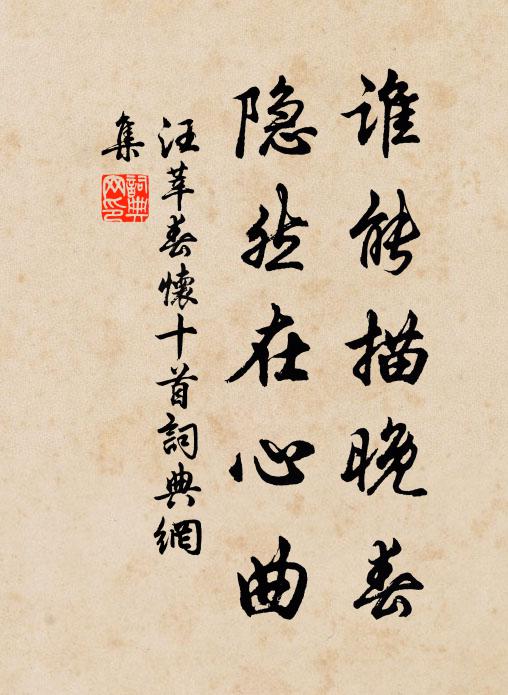 谁能描晚春
隐然在心曲
汪莘春怀十首词典網
集
詞典
网印